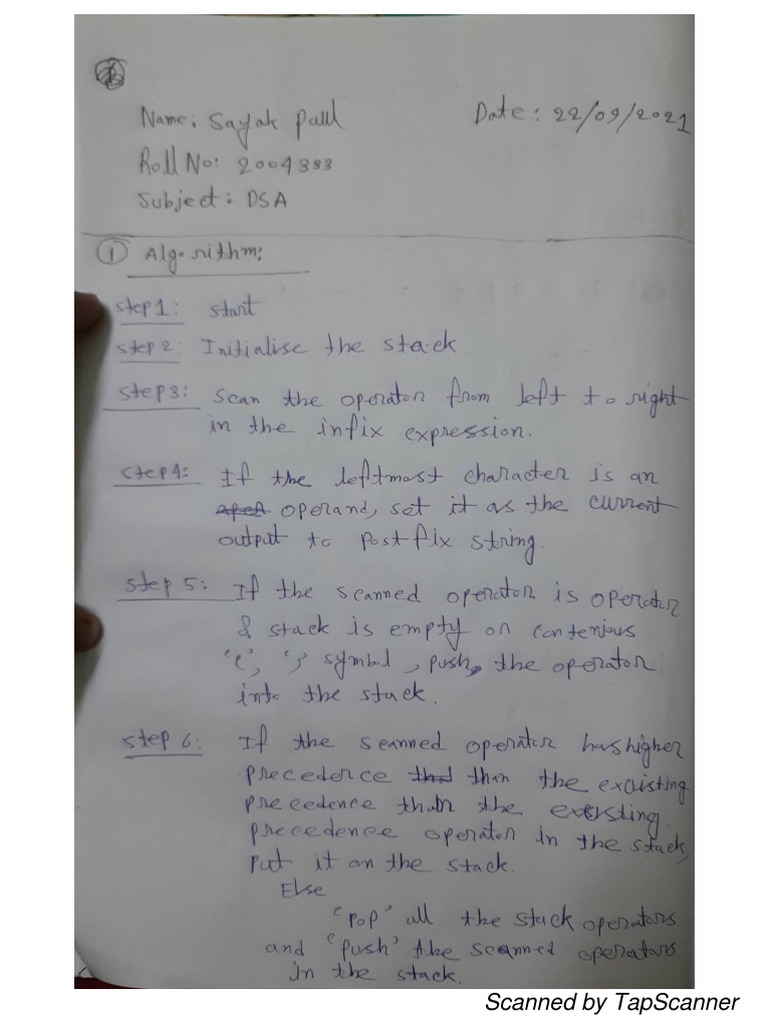 Name: Sayak Paul
Date: 22/09/2021
Roll No: 2004383
Subject: DSA
① Algorithm:
Step 1: start
Step 2: Initialise the stack
Step 3: Scan the operator from left to right
in the infix expression.
Step 4: If the leftmost character is an
operand, set it as the current
output to postfix string.
Step 5: If the scanned operator is operator
& stack is empty or contenious
'(', ')' symbol, push, the operator
into the stack.
Step 6: If the scanned operator has higher
precedence than the excisting
precedence than the existing
precedence operator in the stack,
put it on the stack.
Else
'pop' all the stack operators
and 'push' the scanned operators
in the stack.
Scanned by TapScanner